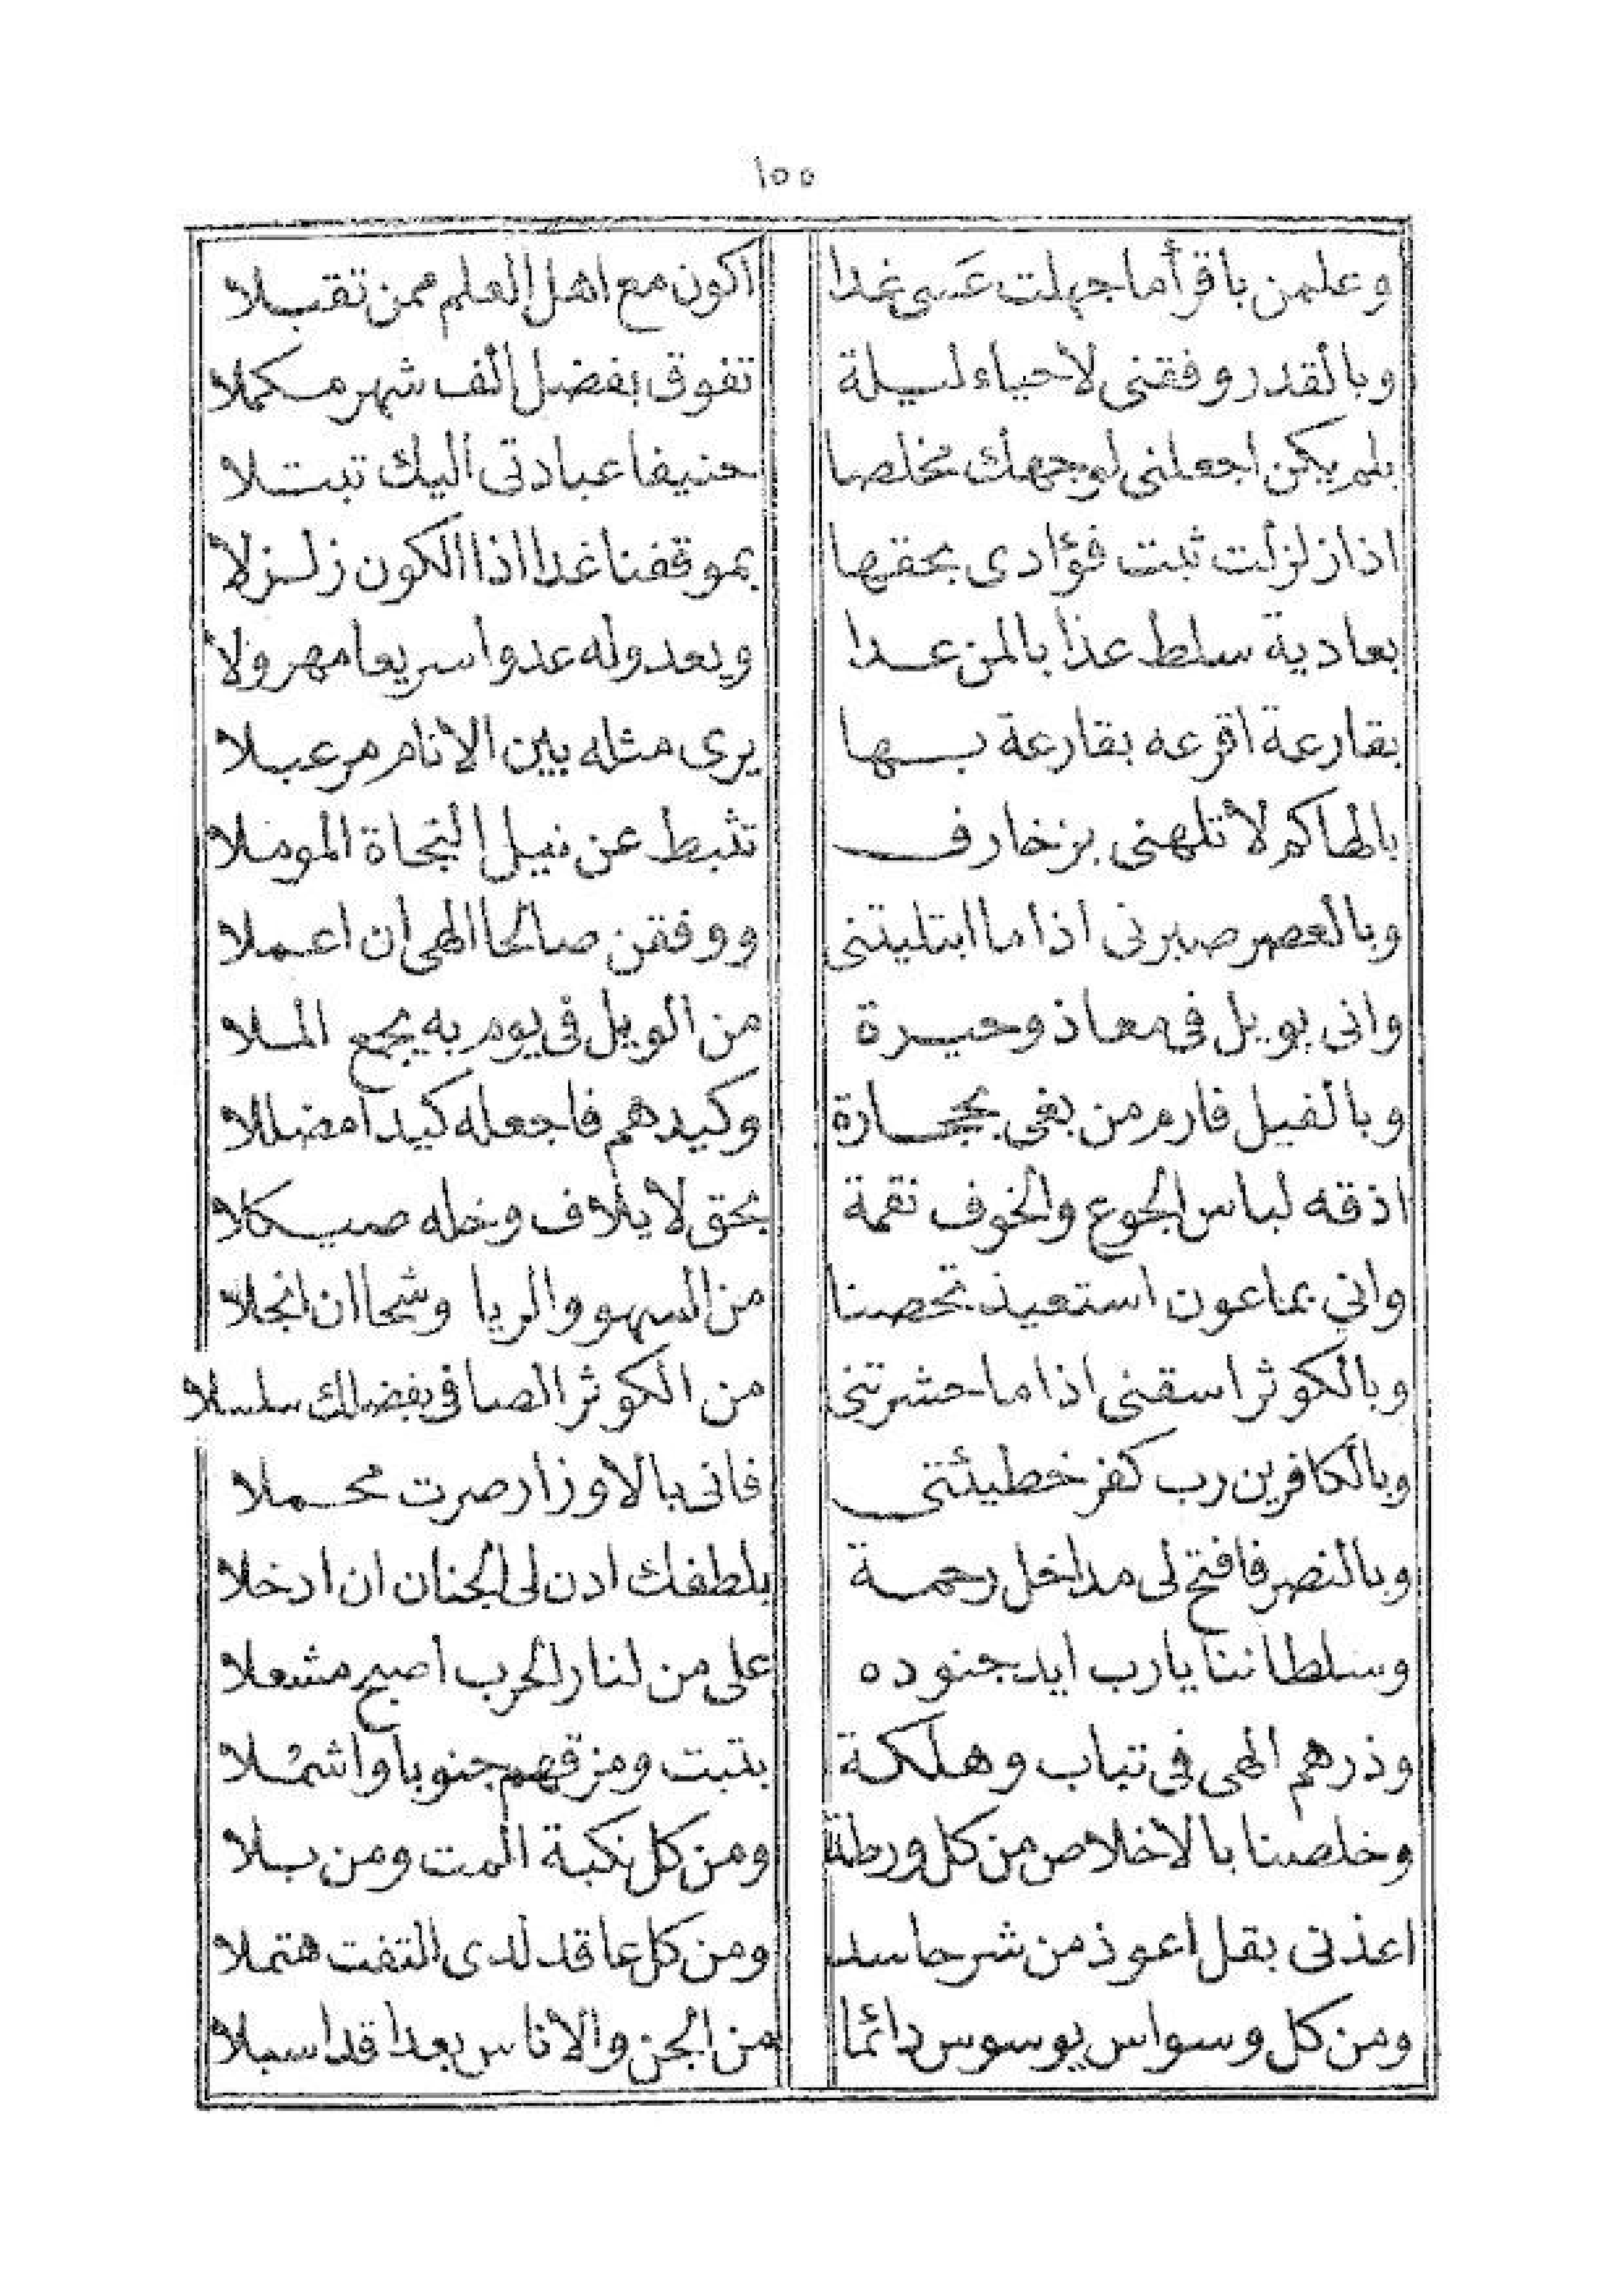 ١٥٥
وعلمن باقرأ ما جهلت عَسى غدا اكون مع اهل العلم ممن تقبلا
وبالقدر وفقنى لاحياء ليلة تفوق بفضل الف شهر مكملا
بلم يكن اجعلنى لوجهك مخلصا حنيفا عبادتى اليك تبتلا
اذا زلزلت ثبت فؤادى بحقها بموقفنا غدا اذا الكون زلزلا
بعادية سلط عذا بالمن عدا ويعدوله عدوا سريعا مهرولا
بقارعة اقرعه بقارعة بها يرى مثله بين الانام مرعبلا
بالهاكم لا تلهنى بزخارف تثبط عن نيل النجاة الموملا
وبالعصر صبرنى اذا ما ابتليتنى ووفقن صالحا الهى ان اعملا
وانى بويل فى معاذ وحيرة من الويل فى يوم به يجمع الملا
وبالفيل فارم من بغى بحجارة وكيدهم فاجعله كيدا مضللا
اذقه لباس الجوع والخوف نقمة بحق لايلاف وخله صيكلا
وانى بماعون استعيذ تحصنا من السهو والريا وشحا ان انجلا
وبالكوثر اسقنى اذا ما حشرتنى من الكوثر الصافى بفضلك سلسلا
وبالكافرين رب كفر خطيئتى فانى بالاوزار صرت محملا
وبالنصر فافتح لى مداخل رحمة بلطفك ادن لى الجنان ان ادخلا
وسلطاننا يارب ايد جنوده على من لنار الحرب اصبح مشعلا
وذرهم الهى فى تباب وهلكة بتبت ومزقهم جنوبا واشملا
وخلصنا بالاخلاص من كل ورطة ومن كل نكبة المت ومن بلا
اعذنى بقل اعوذ من شر حاسد ومن كل عاقد لدى التفت هتملا
ومن كل وسواس يوسوس دائما من الجن والاناس بعدا قد اسبلا